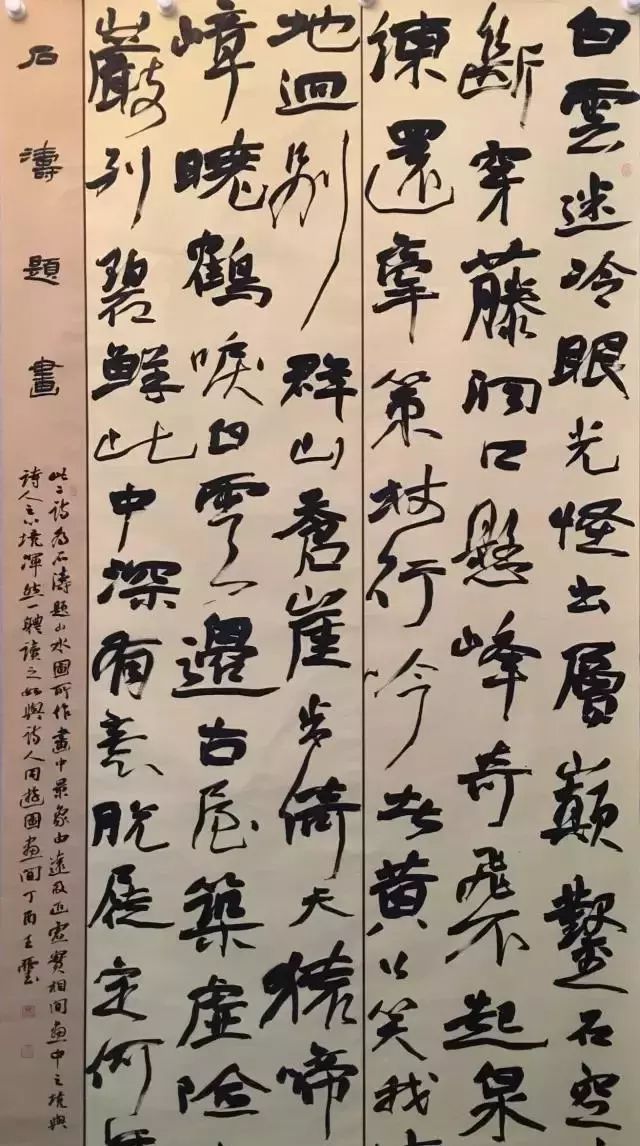 白雲迷冷眼光怪出層巔鑿石空
斷穿藤洞口懸峰奇飛不起泉
練還牽策杖行吟者黃公笑我
地迥別群山蒼崖倚天猿啼
嶂曉鶴唳白雲邊古屋築虛險
巖列碧鮮此中深有意脫屣定何
石濤題畫
此二詩為石濤題山水圖所作畫中景象由遠及近虛實相間畫中之境與
詩人意境渾然一體讀之如與詩人同遊圖畫間丁酉王雲